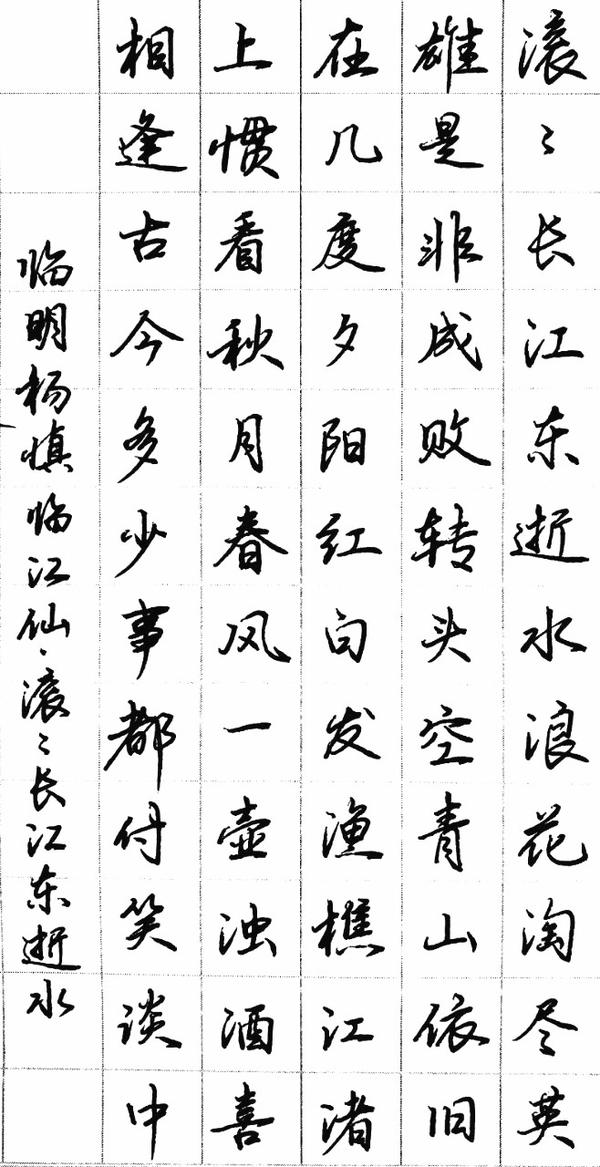 滚〻长江东逝水浪花淘尽英
雄是非成败转头空青山依旧
在几度夕阳红白发渔樵江渚
上惯看秋月春风一壶浊酒喜
相逢古今多少事都付笑谈中
临明杨慎临江仙·滚〻长江东逝水